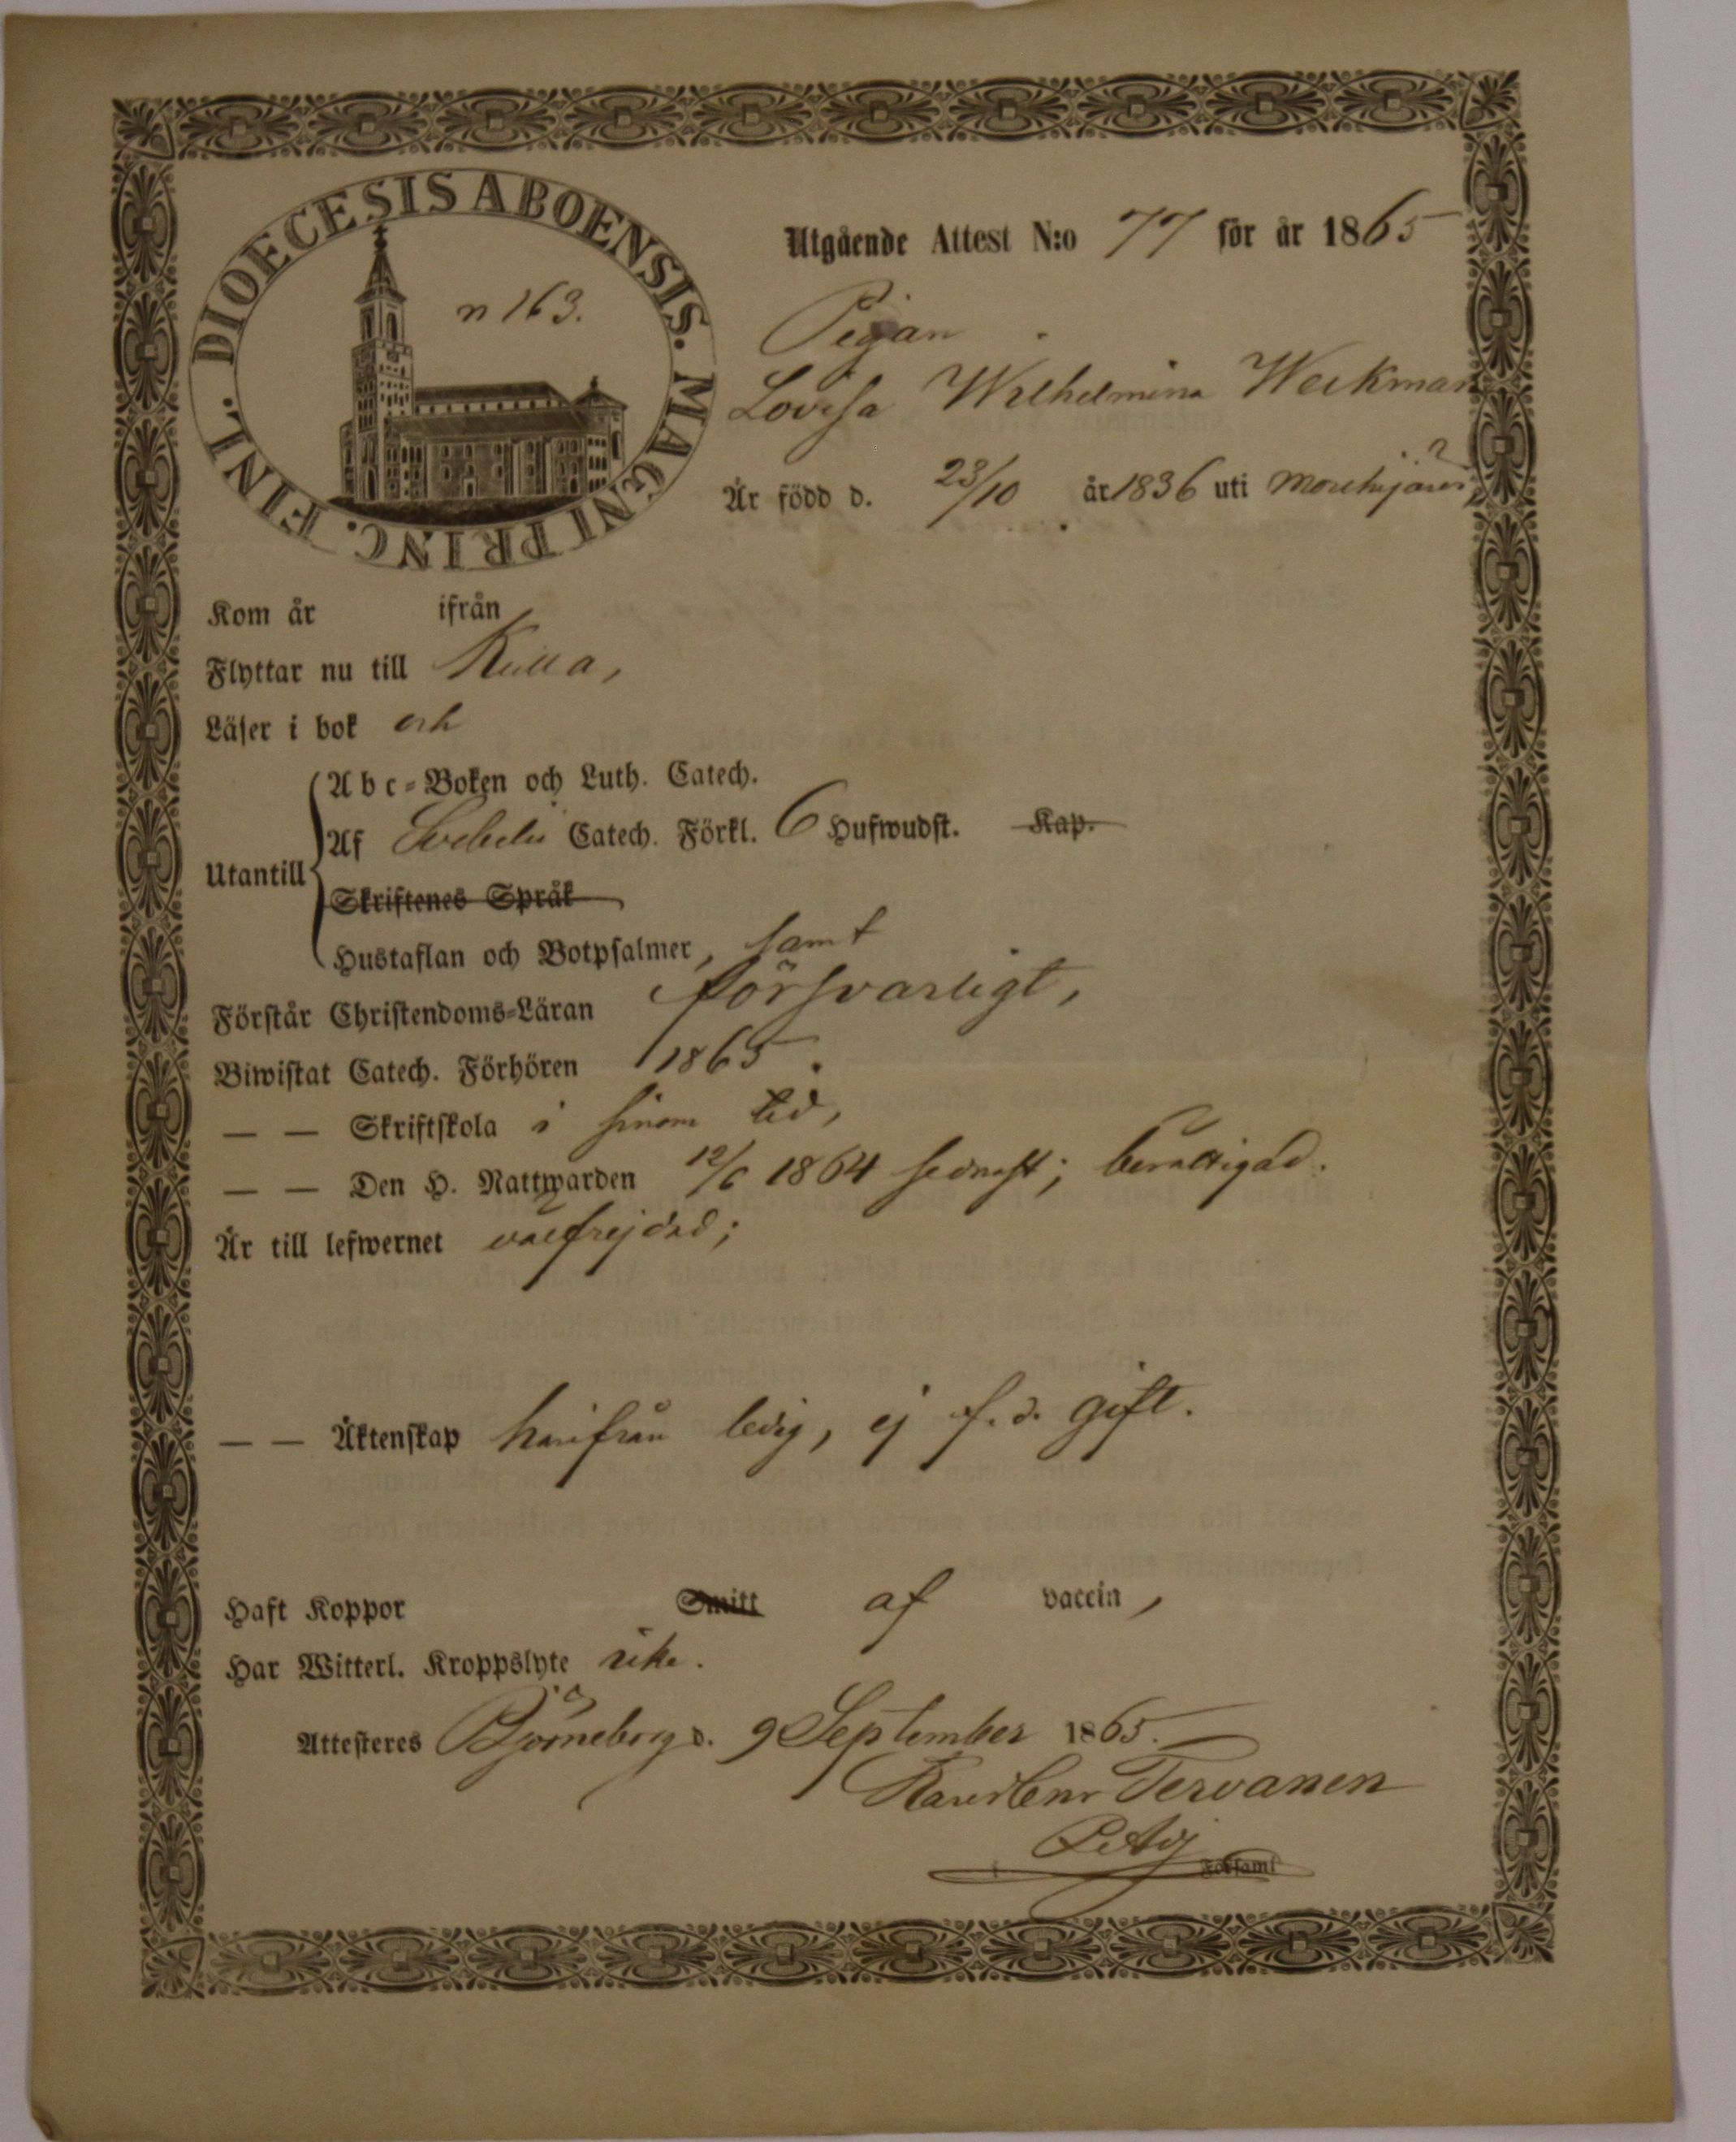 DIOECESIS ABOENSIS. MAGNI PRINC. FINL.
n 163.
Utgående Attest N:o 77 för år 1865
Pigan
Lovisa Wilhelmina Weckman
Är född d. 23/10 år 1836 uti
Kom år ifrån
Flyttar nu till
Läser i bok och
Utantill
Abc-Boken och Luth. Catech.
Af Svebelii Catech. Förkl. 6 Hufwudst. Kap.
Skriftenes Språk
Hustaflan och Botpsalmer, samt
Förstår Christendoms-Läran försvarligt,
Biwistat Catech. Förhören 1865.
— — Skriftskola i sinom tid,
— — Den H. Nattwarden 12/6 1864 sednast; berättigad.
Är till lefwernet välfrejdad;
— — Äktenskap härifrån ledig, ej f.d. gift.
Haft Koppor Smitt af vaccin,
Har Witterl. Kroppslyte icke.
Attesteres Björneborg d. 9 September 1865.
Tervanen
Församl